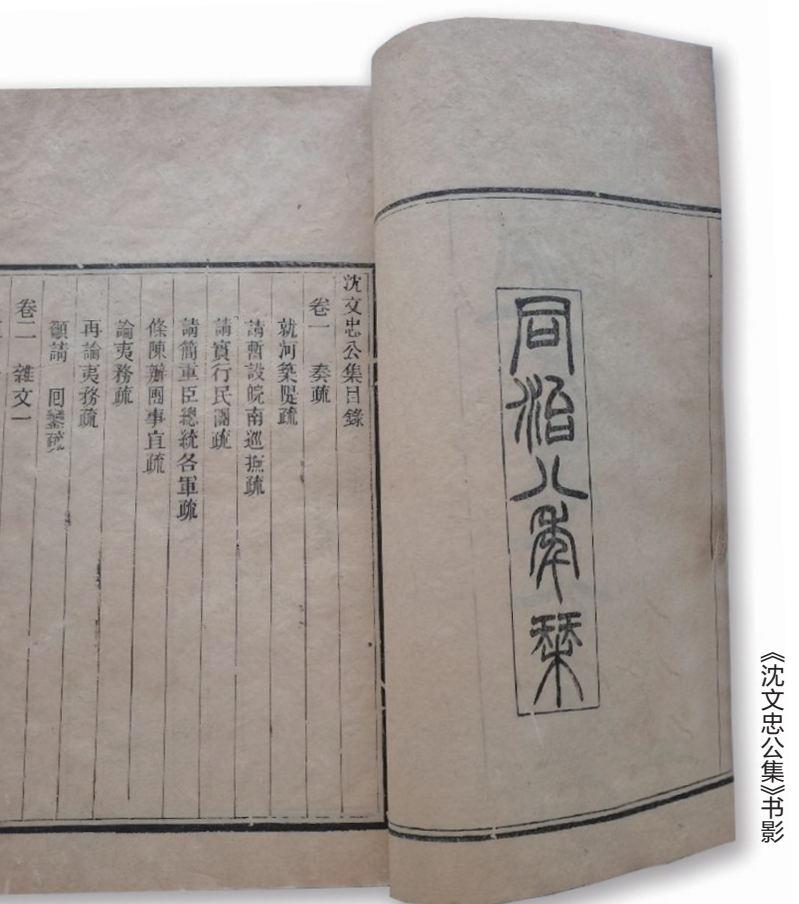 同治八年栞
沈文忠公集目錄
卷一　奏疏
就河築隄疏
請暫設皖南巡撫疏
請實行民團疏
請簡重臣總統各軍疏
條陳辦團事宜疏
論夷務疏
再論夷務疏
籲請　回鑾疏
卷二　雜文一
《沈文忠公集》书影